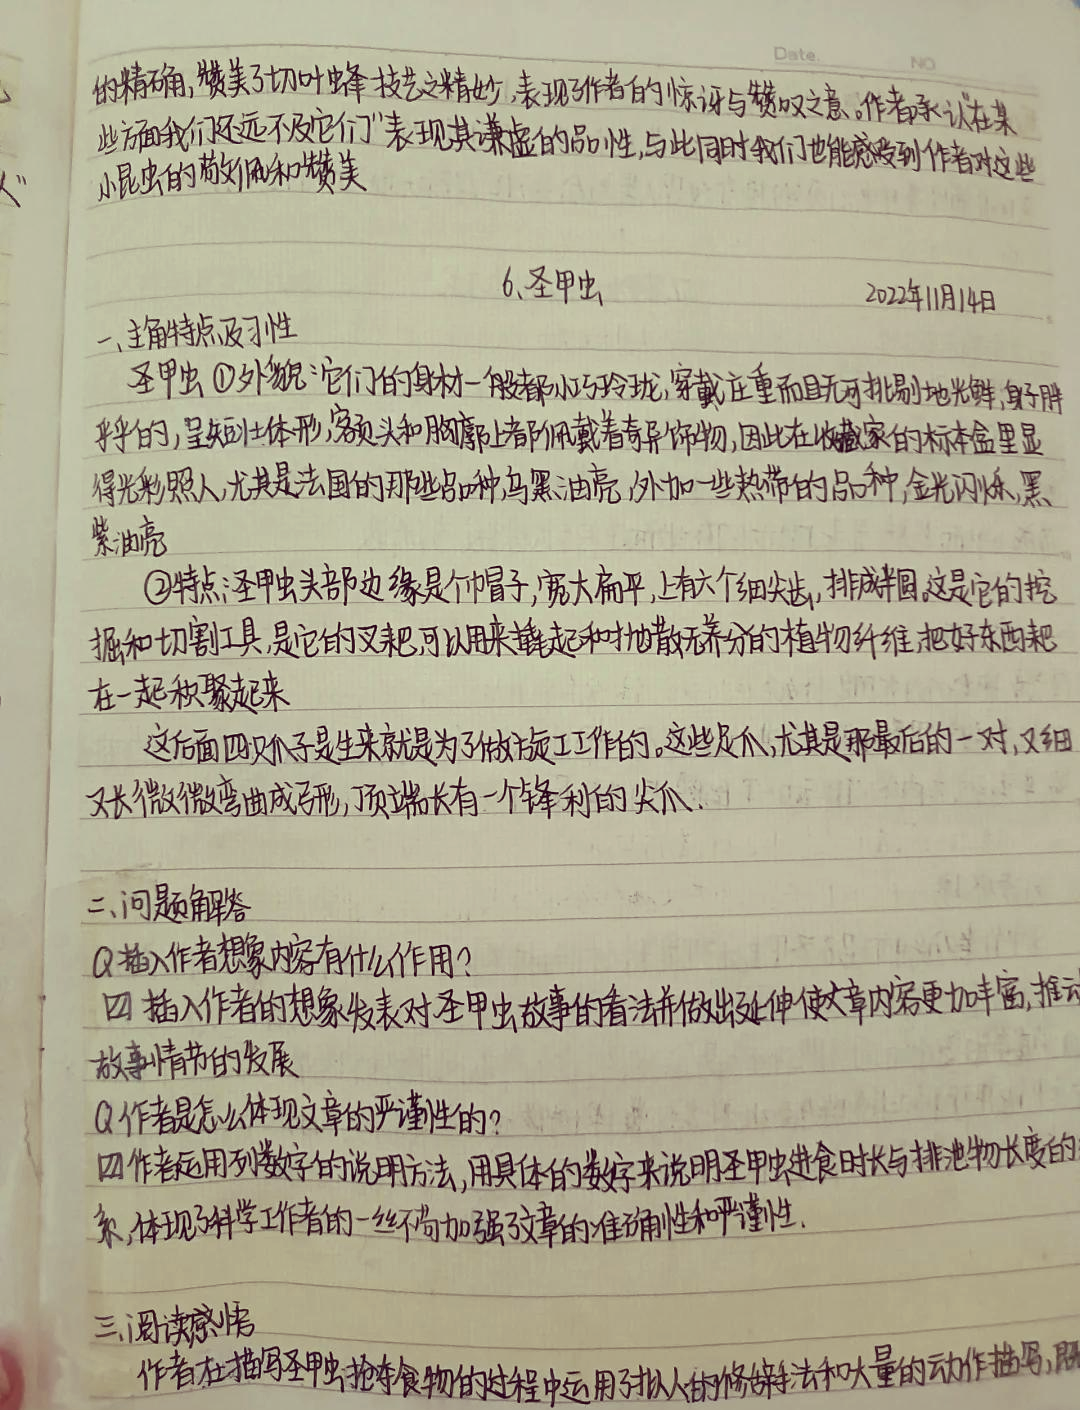 Date.
NO
的精确,赞美了切叶蜂技艺之精妙,表现了作者的惊讶与赞叹之意。作者承认“在某
些方面我们还远不及它们”表现其谦虚的品性,与此同时我们也能感受到作者对这些
小昆虫的敬佩和赞美
6、圣甲虫
2022年11月14日
一、主角特点及习性
圣甲虫①外貌:它们的身材一般都小巧玲珑,穿戴庄重而且无可挑剔地光鲜,身子胖
乎乎的,呈短壮体形,额头和胸廓上都佩戴着奇异饰物,因此在收藏家的标本盒里显
得光彩照人,尤其是法国的那些品种,乌黑油亮,外加一些热带的品种,金光闪烁,黑
紫油亮
②特点:圣甲虫头部边缘是个巾冒子,宽大扁平,上有六个细尖齿,排成半圆。这是它的挖
掘和切割工具,是它的叉耙,可以用来撬起和抛散无养分的植物纤维,把好东西耙
在一起积聚起来
这后面四只爪子是生来就是为了做旋工工作的。这些足爪,尤其是那最后的一对,又细
又长微微弯曲成弓形,顶端长有一个锋利的尖爪.
二、问题解答
Q插入作者想象内容有什么作用?
四 插入作者的想象发表对圣甲虫故事的看法并做出延伸使文章内容更加丰富,推动
故事情节的发展
Q作者是怎么体现文章的严谨性的?
四作者运用列数字的说明方法,用具体的数字来说明圣甲虫进食时长与排泄物长度的
系,体现了科学工作者的一丝不苟加强了文章的准确性和严谨性.
三、阅读感悟
作者在描写圣甲虫抢夺食物的过程中运用了拟人的修辞手法和大量的动作描写,